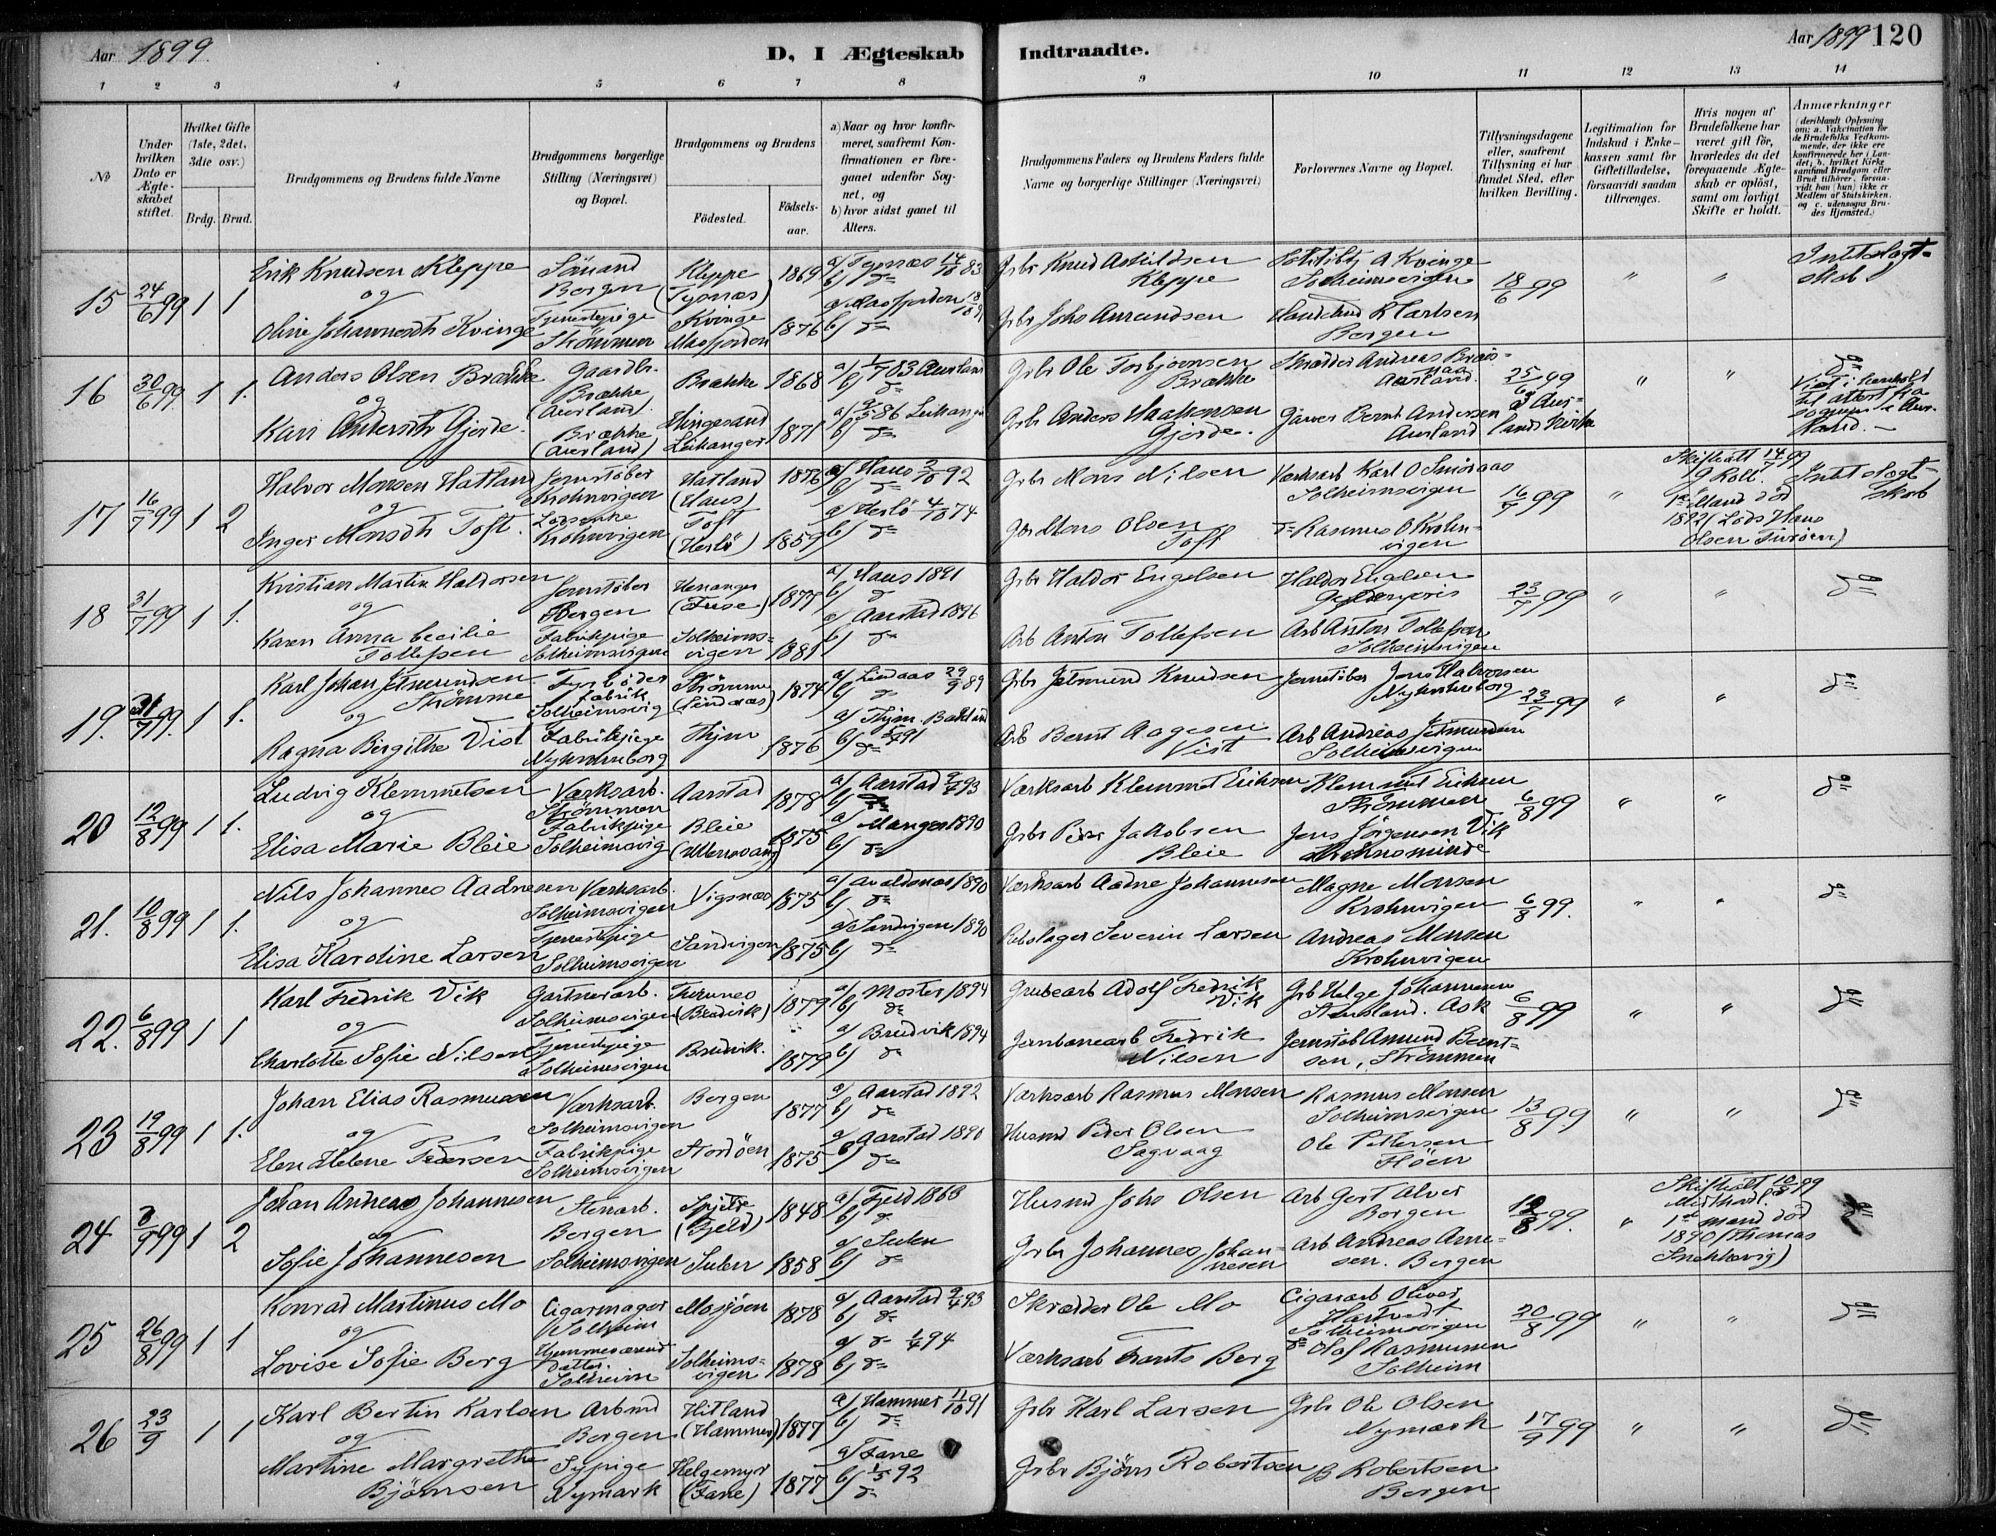 Aar 1899.
D, I Ægteskab Indtraadte.
Aar 1899 120
1 2 3 4 5 6 7 8 9 10 11 12 13 14
No
Under hvilken Dato er Ægteskabet stiftet.
Hvilket Gifte (1ste, 2det, 3die osv.)
Brdg. Brud.
Brudgommens og Brudens fulde Navne
Brudgommens borgerlige Stilling (Næringsvei) og Bopæl.
Brudgommens og Brudens
Fødested.
Fødsels-aar.
a) Naar og hvor konfirmeret, saafremt Konfirmationen er foregaaet udenfor Sognet, og
b) hvor sidst gaaet til Alters.
Brudgommens Faders og Brudens Faders fulde Navne og borgerlige Stillinger (Næringsvei)
Forlovernes Navne og Bopæl.
Tillysningsdagene eller, saafremt Tillysning ei har fundet Sted, efter hvilken Bevilling.
Legitimation for Indskud i Enkekassen samt for Giftetilladelse, forsaavidt saadan tiltrænges.
Hvis nogen af Brudefolkene har været gift før, hvorledes da det foregaaende Ægteskab er opløst, samt om lovligt Skifte er holdt.
Anmærkninger (deriblandt Oplysning om: a. Vakcination for de Brudefolks Vedkommende, der ikke ere konfirmerede her i Landet; b. hvilket Kirkesamfund Brudgom eller Brud tilhører, forsaavidt han (hun) ikke er Medlem af Statskirken, og c. udensogns Brudes Hjemsted.)
15 24/6 99 1 1 Erik Knudsen Kleppe Sömand Bergen Kleppe (Tysnæs) 1869 a) Tysnæs 14/10 83 b) do Gbr Knud Askildsen Kleppe A Kvinge Solheimsvigen 18/6 99 " " Intet slægtskab
og
Oline Johannesdt Kvinge Tjenestepige Strömmen Kvinge Masfjorden 1876 a) Masfjorden 18/10 91 b) do Gbr Johs Amundsen K Karlsen Bergen
16 30/6 99. 1 1. Anders Olsen Brække Gaardbr. Brække (Aurland). Brække 1868 a) 1/7 83 Aurland b) do Gbr Ole Torbjörnsen Brække Skrædder Andreas Aurland. 25/6 99 Aurlands Kirke " " do
og
Kari Andersdt Gjerde. Brække (Aurland) Leikanger 1871 a) 86 Leikanger b) do Gbr Anders Haakonsen Gjerde. Garver Bernt Andersen Aurland
17 16/7 99 1 2 Halvor Monsen Hatland Jernstöber Krohnvigen Hatland (Haus) 1876 a) Haus 2/10 92 b) do Gbr Mons Nilsen Værksarb Karl O Smöraas Solheimsvigen 16/7 99 " Skifteatt 14/7 99 1ste Mand död 1892 (Lods Hans Olsen Turöen) Intet slægtskab
og
Inger Monsdt Toft. Lodsenke Krohnvigen Toft (Herlö) 1859 a) Herlö 4/10 74 b) do Gbr Mons Olsen Toft do Rasmus O Krohnvigen
18 31/7 99 1 1. Kristian Martin Haldorsen Jernstöber Bergen Henanger (Fuse) 1877 a) Haus 1891 b) do Gbr Haldor Engelsen Haldor Engelsen 23/7 99 " " do
og
Karen Anna Cecilie Tollefsen Fabrikpige Solheimsvigen Solheimsvigen 1881 a) Aarstad 1896 b) do Arb Anton Tollefsen Arb Anton Tollefsen Solheimsvigen
19. 31/7 99. 1 1. Karl Johan Jetmundsen Strömme Fyrböder Fabrik Solheimsvig Strömme (Lindaas) 1874 a) Lindaas 29/9 89 b) do Gbr Jetmund Knudsen Jernstöber Jens Halvorsen Nykrohnborg 23/7 99 " " do
og
Ragna Birgithe Vist Fabrikpige Nykrohnborg Thjem 1876 a) Thjem. 91 b) do Arb Bernt Aagesen Vist Arb Andreas Jetmundsen Solheimsvigen
20 12/8 99 1 1. Ludvig Klemmetsen Værksarb. Strömmen Aarstad 1878 a) Aarstad 9/4 93 b) do Værksarb Klemmet Eriksen Klemmet Eriksen Strömmen 6/8 99 " " do
og
Elisa Marie Bleie Fabrikpige Solheimsvig Bleie (Ullensvang) 1875 a) Manger 1890 b) do Gbr Peder Jakobsen Bleie Jens Jörgensen Vik
21. 10/8 99 1 1. Nils Johannes Aadnesen Værksarb. Solheimsvigen Vigsnæs 1875 a) Avaldsnæs 1890 b) do Værksarb Aadne Johannesen Magne Monsen Krohnvigen 6/8 99. " " do
og
Elisa Karoline Larsen Tjenestepige Solheimsvigen Sandvigen 1875 a) Sandvigen 1890 b) do Rebslager Severin Larsen Andreas Monsen Krohnvigen
22. 6/8 99 1 1 Karl Fredrik Vik Gartnerarb. Solheimsvigen (Bredvik) 1879 a) Moster 1894 b) do Grubearb Adolf Fredrik Vik Gbr Helge Johannesen Ask 6/8 99 " " do
og
Charlotte Sofie Nilsen Tjenestepige Solheimsvigen Bruvik. 1879 a) Brudvik 1894 b) do Jernbanearb Fredrik Nilsen Jernstöb Amund Berntsen, Strömmen
23 19/8 99 1 1. Johan Elias Rasmussen Værksarb. Solheimsvigen Bergen 1877 a) Aarstad 1892 b) do Værksarb Rasmus Monsen Rasmus Monsen Solheimsvigen 13/8 99. " " do
og
Elen Helene Pedersen Fabrikpige Solheimsvigen Stordöen 1875 a) Aarstad 1890 b) do Husmd Peder Olsen Sagvaag Ole Pettersen Flöen
24 3/9 99 1 2 Johan Andreas Johannesen Stenarb. Bergen Spjeld (Fjeld) 1848 a) Fjeld 1863 b) do Husmd Johs Olsen Arb Gert Alver Bergen 13/8 99. " Skifteatt 10/8 99 1ste mand död 1890 (Thomas Snekkevig) do
og
Sofie Johannesen Solheimsvigen Sulen 1858 a) Sulen b) do Gbr Johannes Johannesen Arb Andreas Arnesen. Bergen
25 26/8 99 1 1 Konrad Martinus Mo Cigarmager Solheim Mosjöen 1878 a) Aarstad 9/4 93 b) do Skrædder Ole Mo Cigararb Oliver Hartvedt Solheimsvigen 20/8 99 " " do
og
Lovise Sofie Berg Hjemmeværend Datter. Solheim Solheimsvigen 1878 a) do 1/4 94 b) do Værksarb Frants Berg do Olaf Rasmussen Solheim
26 23/9 1 1 Karl Bertin Karlsen Arbmd Bergen Hitland (Hammer) 1877 a) Hammer 11/10 91 b) do Gbr Karl Larsen Gbr Ole Olsen Nymark 17/9 99 " " do
og
Martine Margrethe Björnsen Sypige Nymark Helgemyr (Fane) 1877 a) Fane 1/5 92 b) do Gbr Björn Robertsen B Robertsen Bergen